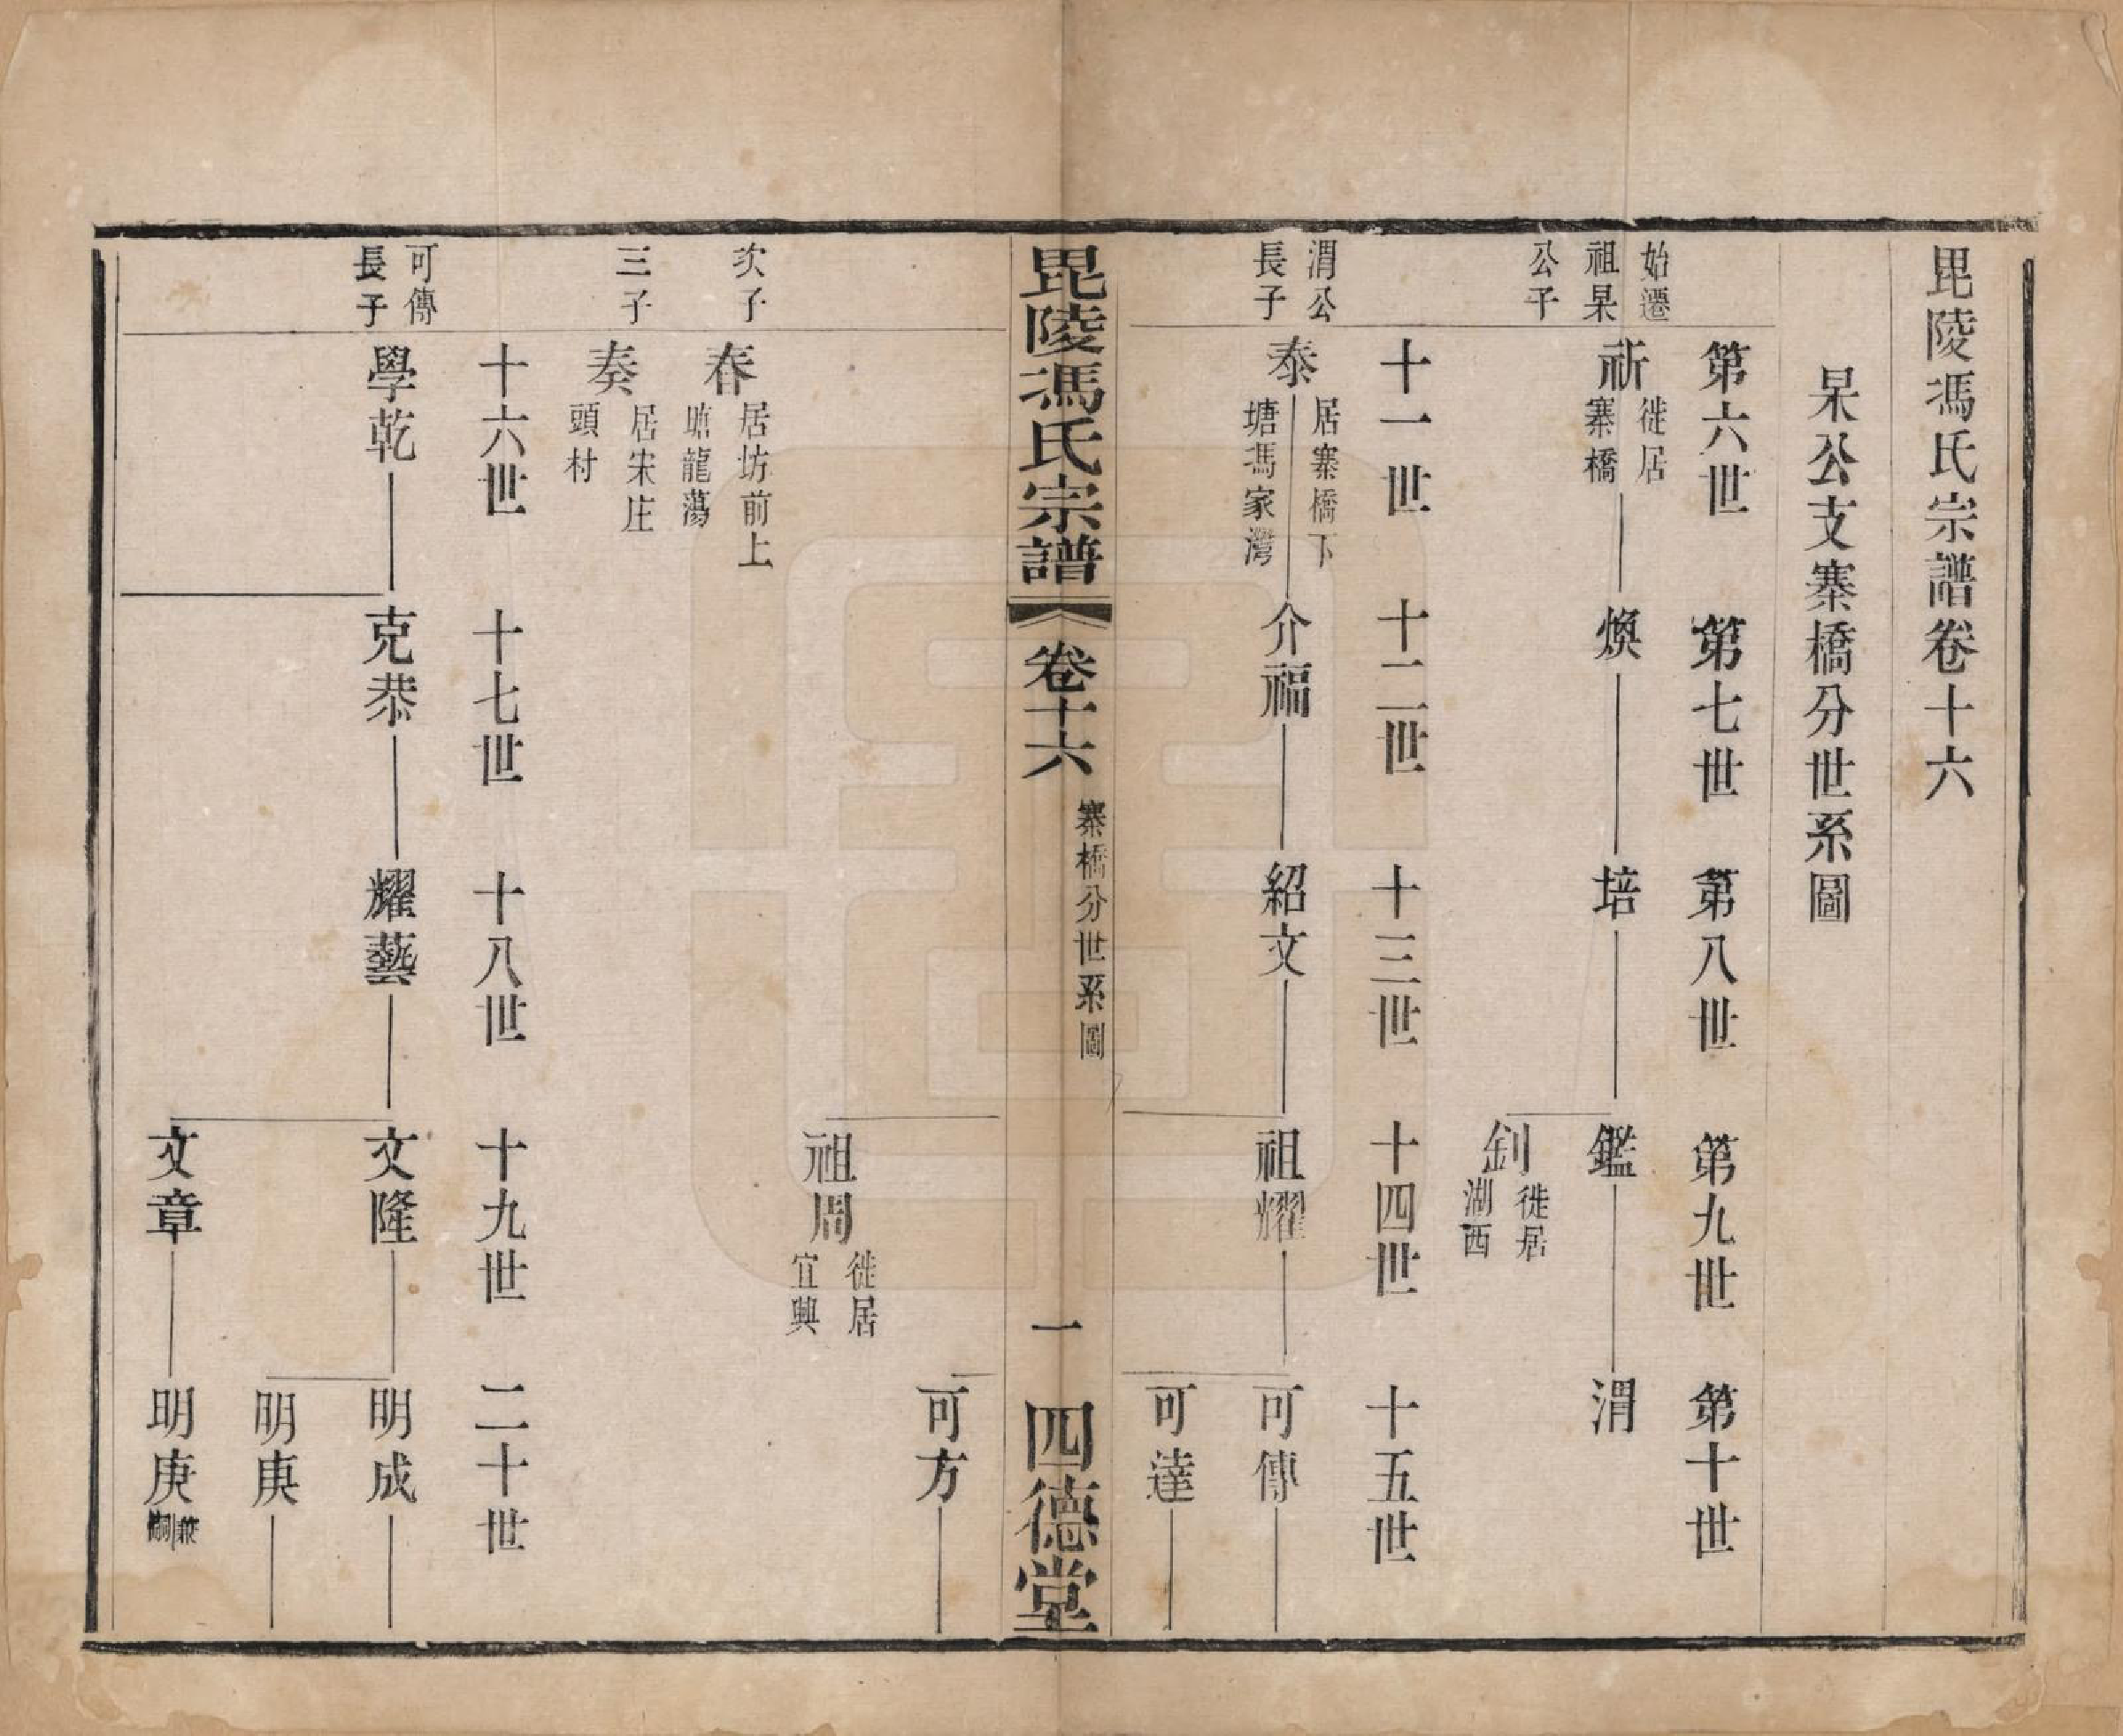 毘陵馮氏宗譜卷十六
杲公支寨橋分世系圖
第六世　第七世　第八世　第九世　第十世
始遷
祖杲
公子
祈　徙居
寨橋
煥　培　鑑　渭
釗　徙居
湖西
十一世　十二世　十三世　十四世　十五世
渭公
長子
泰　居寨橋下
塘馮家灣
介福　紹文　祖耀　可傳
可達
毘陵馮氏宗譜　卷十六　寨橋分世系圖　一　四德堂
可方
祖周　徙居
宜興
次子
春　居坊前上
塘龍蕩
三子
奏　居宋庄
頭村
十六世　十七世　十八世　十九世　二十世
可傳
長子
學乾　克恭　耀藝　文隆　明成
明庚
文章　明庚　兼
嗣